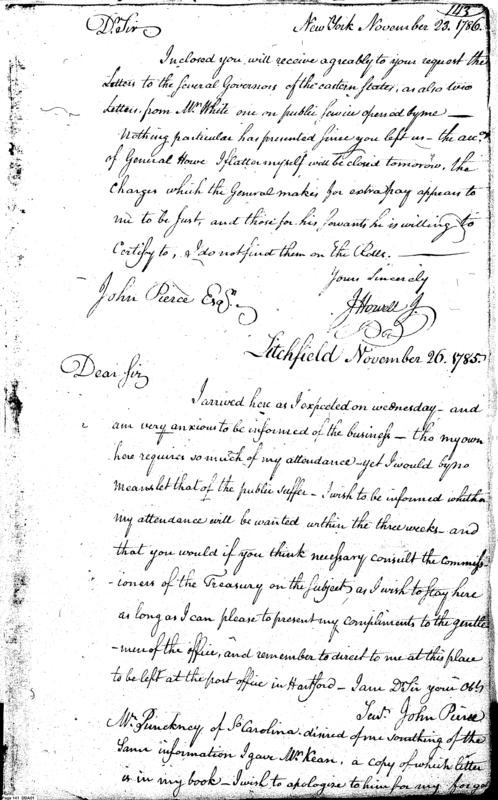 143
Dr Sir New York November 23. 1786.
Inclosed you will receive agreably to your request the
Letters to the several Governors of the eastern states, as also two
Letters from Mr White one on public service opened by me —
Nothing particular has presented since you left us — the acct
of General Howe I flatter myself, will be closed tomorrow. The
Charges which the General makes for extra pay appears to
me to be just, and those for his servants he is willing to
Certify to, & I do not find them on the Rolls. —
Yours Sincerely
John Pierce Esqr. J Howell Jr
Litchfield November 26. 1785.
Dear Sir
I arrived here as I expected on wednesday — and
am very anxious to be informed of the business — tho my own
here requires so much of my attendance — yet I would by no
means let that of the public suffer — I wish to be informed whether
my attendance will be wanted within the three weeks — and
that you would if you think necessary consult the Commiss-
-ioners of the Treasury on the subject, as I wish to stay here
as long as I can please to present my compliments to the gentle-
-men of the office, and remember to direct to me at this place
to be left at the post office in Hartford — I am Dr Sir your Obt
Servt. John Pierce
Mr Pinckney of So Carolina desired of me something of the
same information I gave Mr Kean. a copy of which letter
is in my book — I wish to apologise to him for my